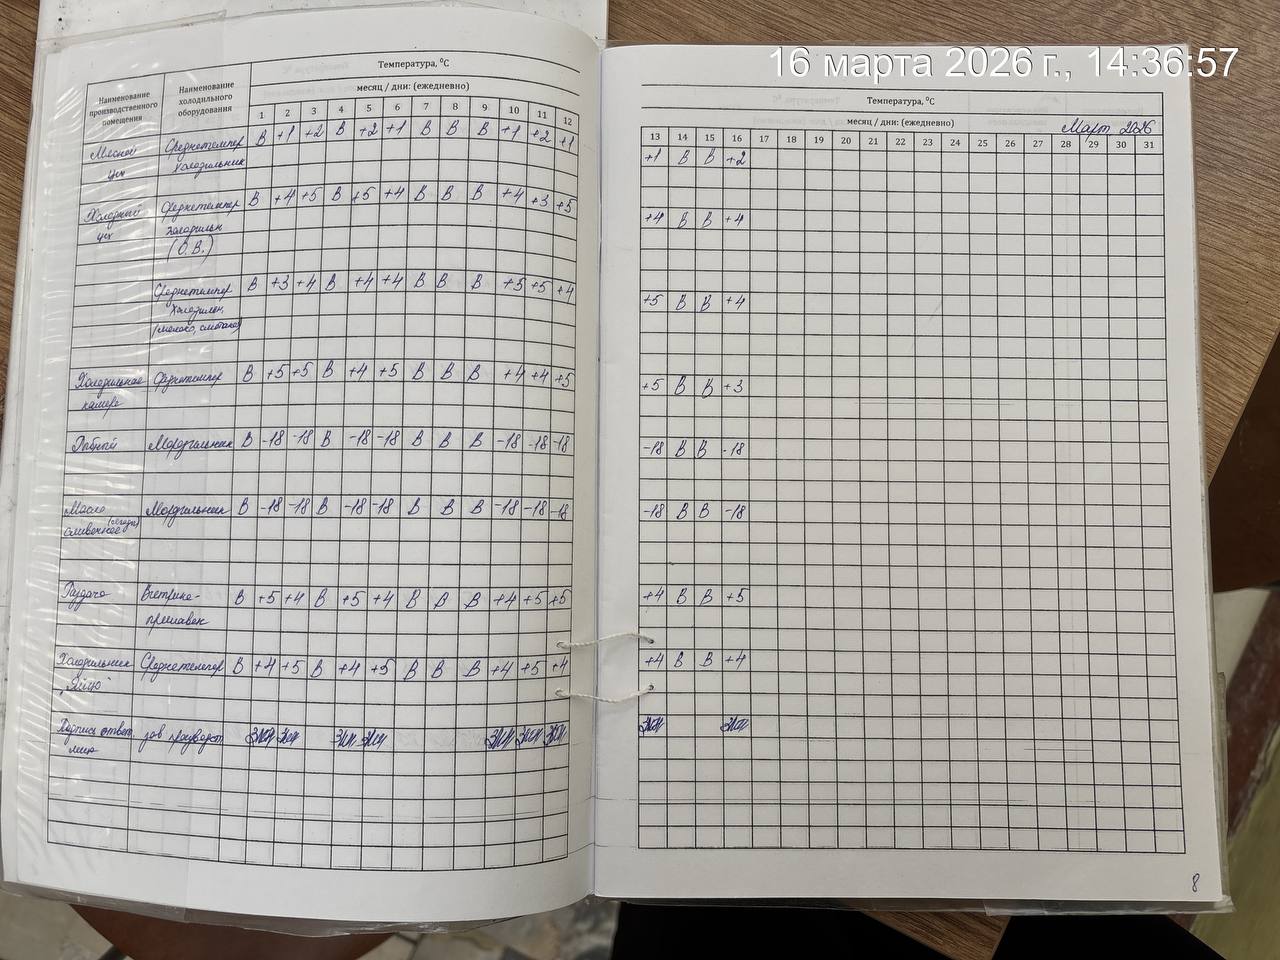 16 марта 2026 г., 14:36:57
Наименование производственного помещения
Наименование холодильного оборудования
Температура, ⁰С
месяц / дни: (ежедневно)
1 2 3 4 5 6 7 8 9 10 11 12
Мясной цех
Среднетемпер холодильник
В +1 +2 В +2 +1 В В В +1 +2 +1
Холодный цех
Среднетемпер холодильн (О.В.)
В +4 +5 В +5 +4 В В В +4 +3 +5
Среднетемпер холодильн, (молоко, сметана)
В +3 +4 В +4 +4 В В В +5 +5 +4
Холодильная камера
Среднетемпер
В +5 +5 В +4 +5 В В В +4 +4 +5
Рыбный
Морозильник
В -18 -18 В -18 -18 В В В -18 -18 -18
Масло сливочное
Морозильник
В -18 -18 В -18 -18 В В В -18 -18 -18
Раздача
Витрина-прилавок
В +5 +4 В +5 +4 В В В +4 +5 +5
Холодильник „Яйцо"
Среднетемпер
В +4 +5 В +4 +5 В В В +4 +5 +4
Подпись ответ лица
зав производст
Температура, ⁰С
месяц / дни: (ежедневно)
Март 2026
13 14 15 16 17 18 19 20 21 22 23 24 25 26 27 28 29 30 31
+1 В В +2
+4 В В +4
+5 В В +4
+5 В В +3
-18 В В -18
-18 В В -18
+4 В В +5
+4 В В +4
8